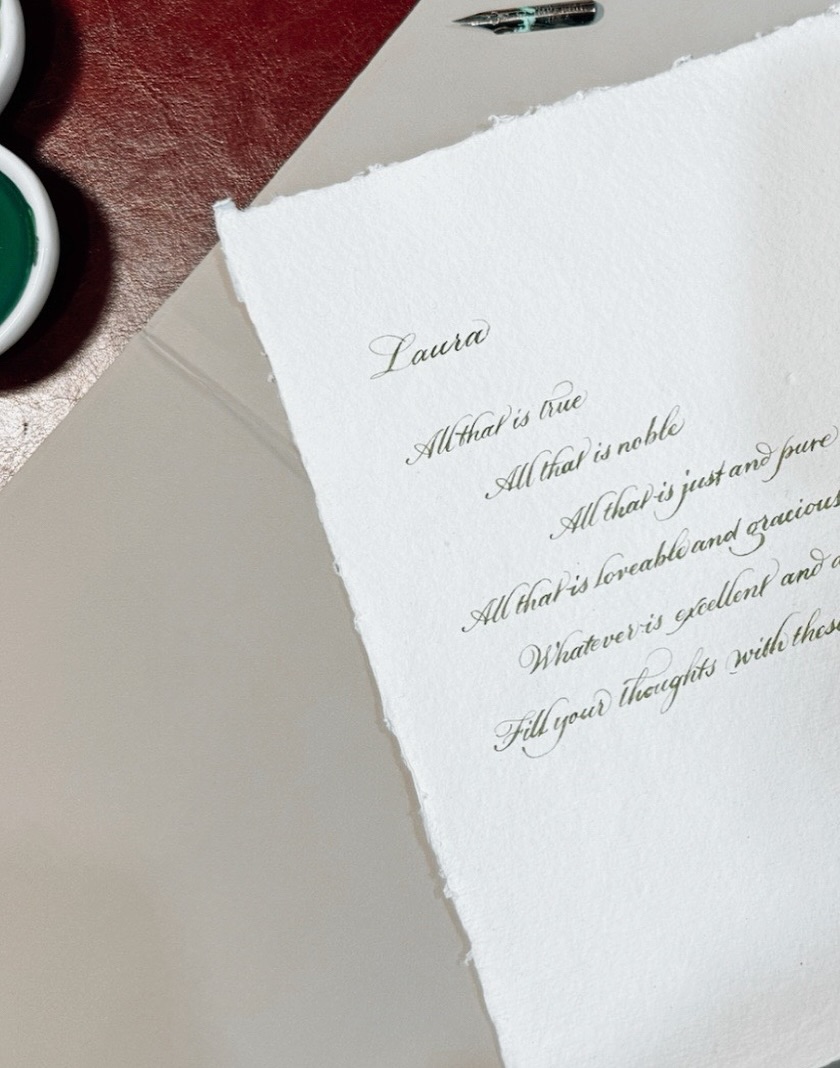 Laura
All that is true
All that is noble
All that is just and pure
All that is loveable and gracious
Whatever is excellent and
Fill your thoughts with these